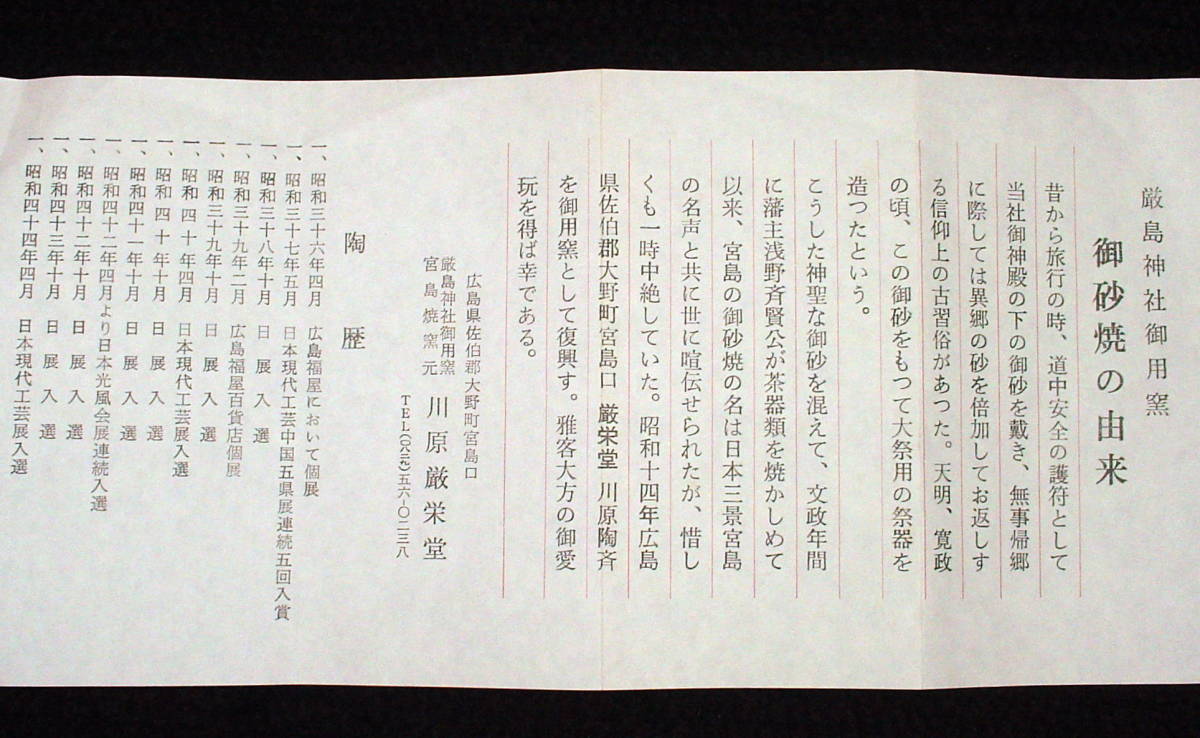 厳島神社御用窯
御砂焼の由来
昔から旅行の時、道中安全の護符として
当社御神殿の下の御砂を戴き、無事帰郷
に際しては異郷の砂を倍加してお返しす
る信仰上の古習俗があつた。天明、寛政
の頃、この御砂をもつて大祭用の祭器を
造つたという。
こうした神聖な御砂を混えて、文政年間
に藩主浅野斉賢公が茶器類を焼かしめて
以来、宮島の御砂焼の名は日本三景宮島
の名声と共に世に喧伝せられたが、惜し
くも一時中絶していた。昭和十四年広島
県佐伯郡大野町宮島口 厳栄堂 川原陶斉
を御用窯として復興す。雅客大方の御愛
玩を得ば幸である。
広島県佐伯郡大野町宮島口
厳島神社御用窯
宮島焼窯元 川原厳栄堂
TEL(〇八二九)五六-〇二三八
陶歴
一、昭和三十六年四月 広島福屋において個展
一、昭和三十七年五月 日本現代工芸中国五県展連続五回入賞
一、昭和三十八年十月 日展入選
一、昭和三十九年二月 広島福屋百貨店個展
一、昭和三十九年十月 日展入選
一、昭和四十年四月 日本現代工芸展入選
一、昭和四十年十月 日展入選
一、昭和四十一年十月 日展入選
一、昭和四十二年四月より日本光風会展連続入選
一、昭和四十二年十月 日展入選
一、昭和四十三年十月 日展入選
一、昭和四十四年四月 日本現代工芸展入選